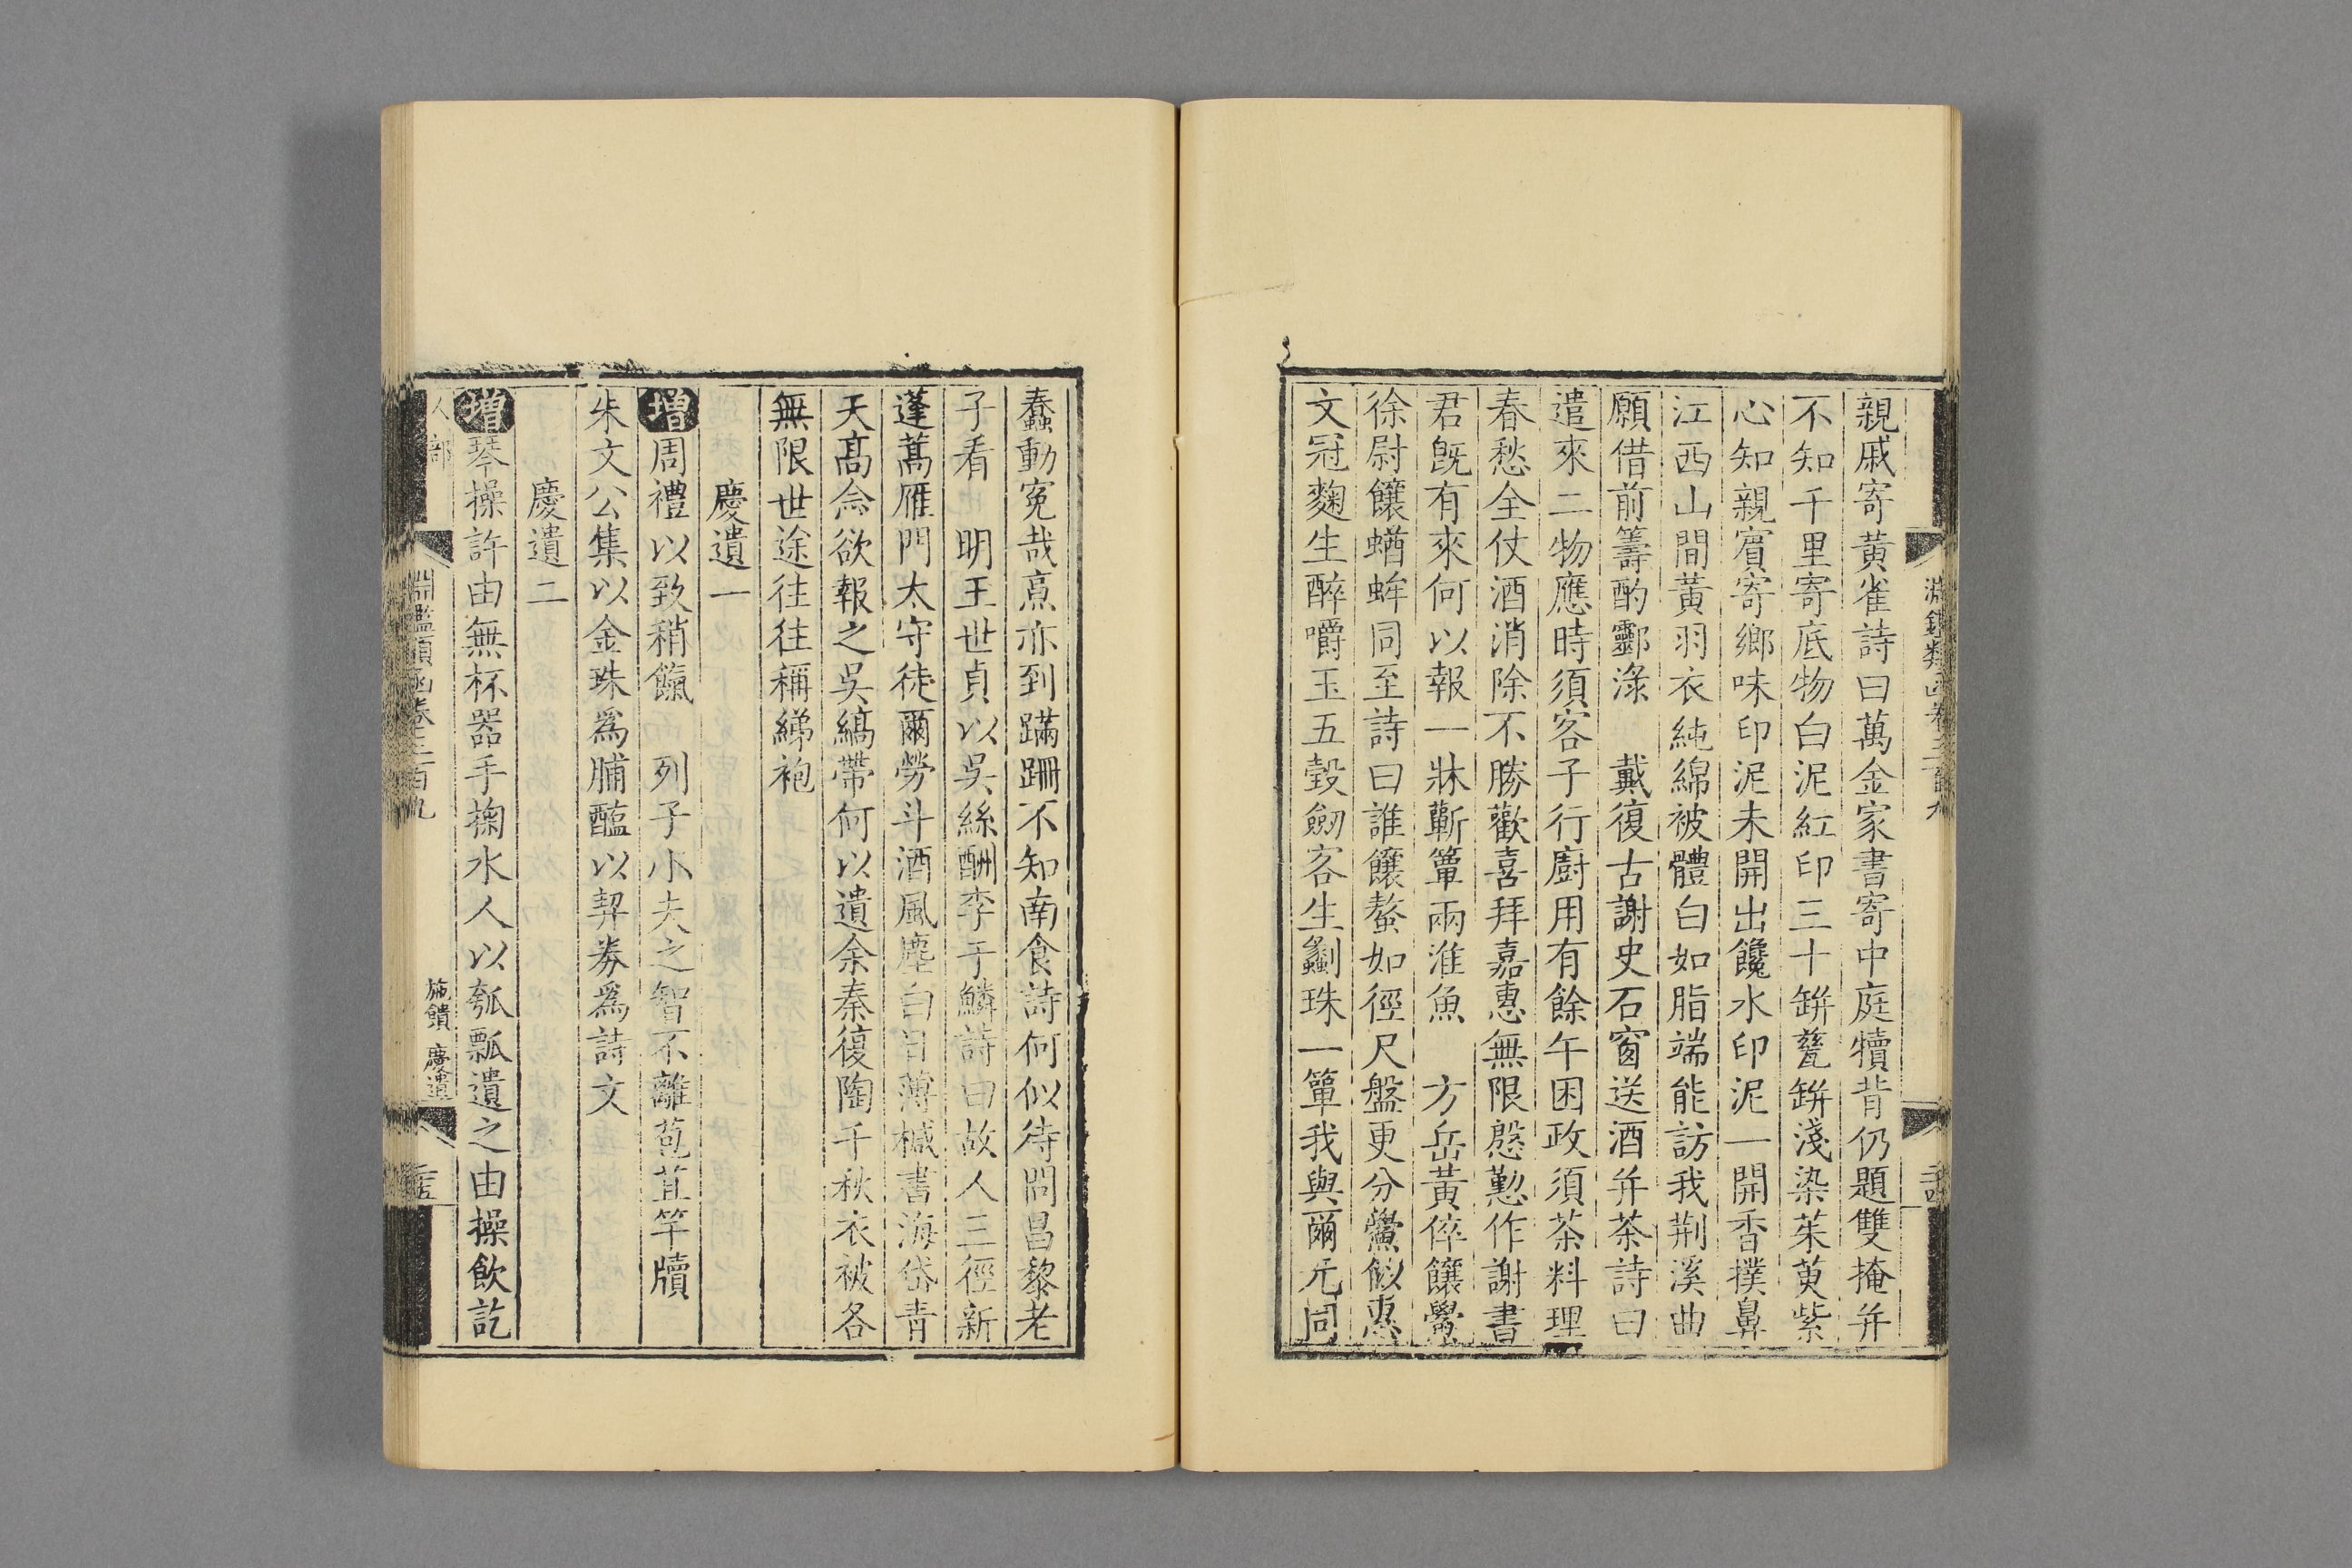 親戚寄黃雀詩曰萬金家書寄中庭犢背仍題雙掩并
不知千里寄底物白泥紅印三十缾甕缾淺染茱萸紫
心知親賓寄鄉味印泥未開出饞水印泥一開香撲鼻
江西山間黃羽衣純綿被體白如脂端能訪我荆溪曲
願借前籌酌酃淥 戴復古謝史石窗送酒并茶詩曰
遣來二物應時須客子行廚用有餘午困政須茶料理
春愁全仗酒消除不勝歡喜拜嘉惠無限慇懃作謝書
君旣有來何以報一牀蘄簟兩淮魚 方岳黃倅饟鱟
徐尉饟蝤蛑同至詩曰誰饟螯如徑尺盤更分鱟似惠
文冠麴生醉嚼玉五㲉劒客生劙珠一簞我與爾元同
蠢動寃哉烹亦到蹣跚不知南食詩何似待問昌黎老
子看 明王世貞以吳絲酬李于鱗詩曰故人三徑新
蓬蒿雁門太守徒爾勞斗酒風塵白日薄槭書海岱青
天高余欲報之吳縞帶何以遺余秦復陶千秋衣被各
無限世途往往稱綈袍
慶遺一
增周禮以致稍餼 列子小夫之智不離苞苴竿牘
朱文公集以金珠爲脯醢以契券爲詩文
慶遺二
增琴操許由無杯器手掬水人以瓠瓢遺之由操飲訖
人部 淵鑑類函卷三百九 施饋 慶遺 二十五